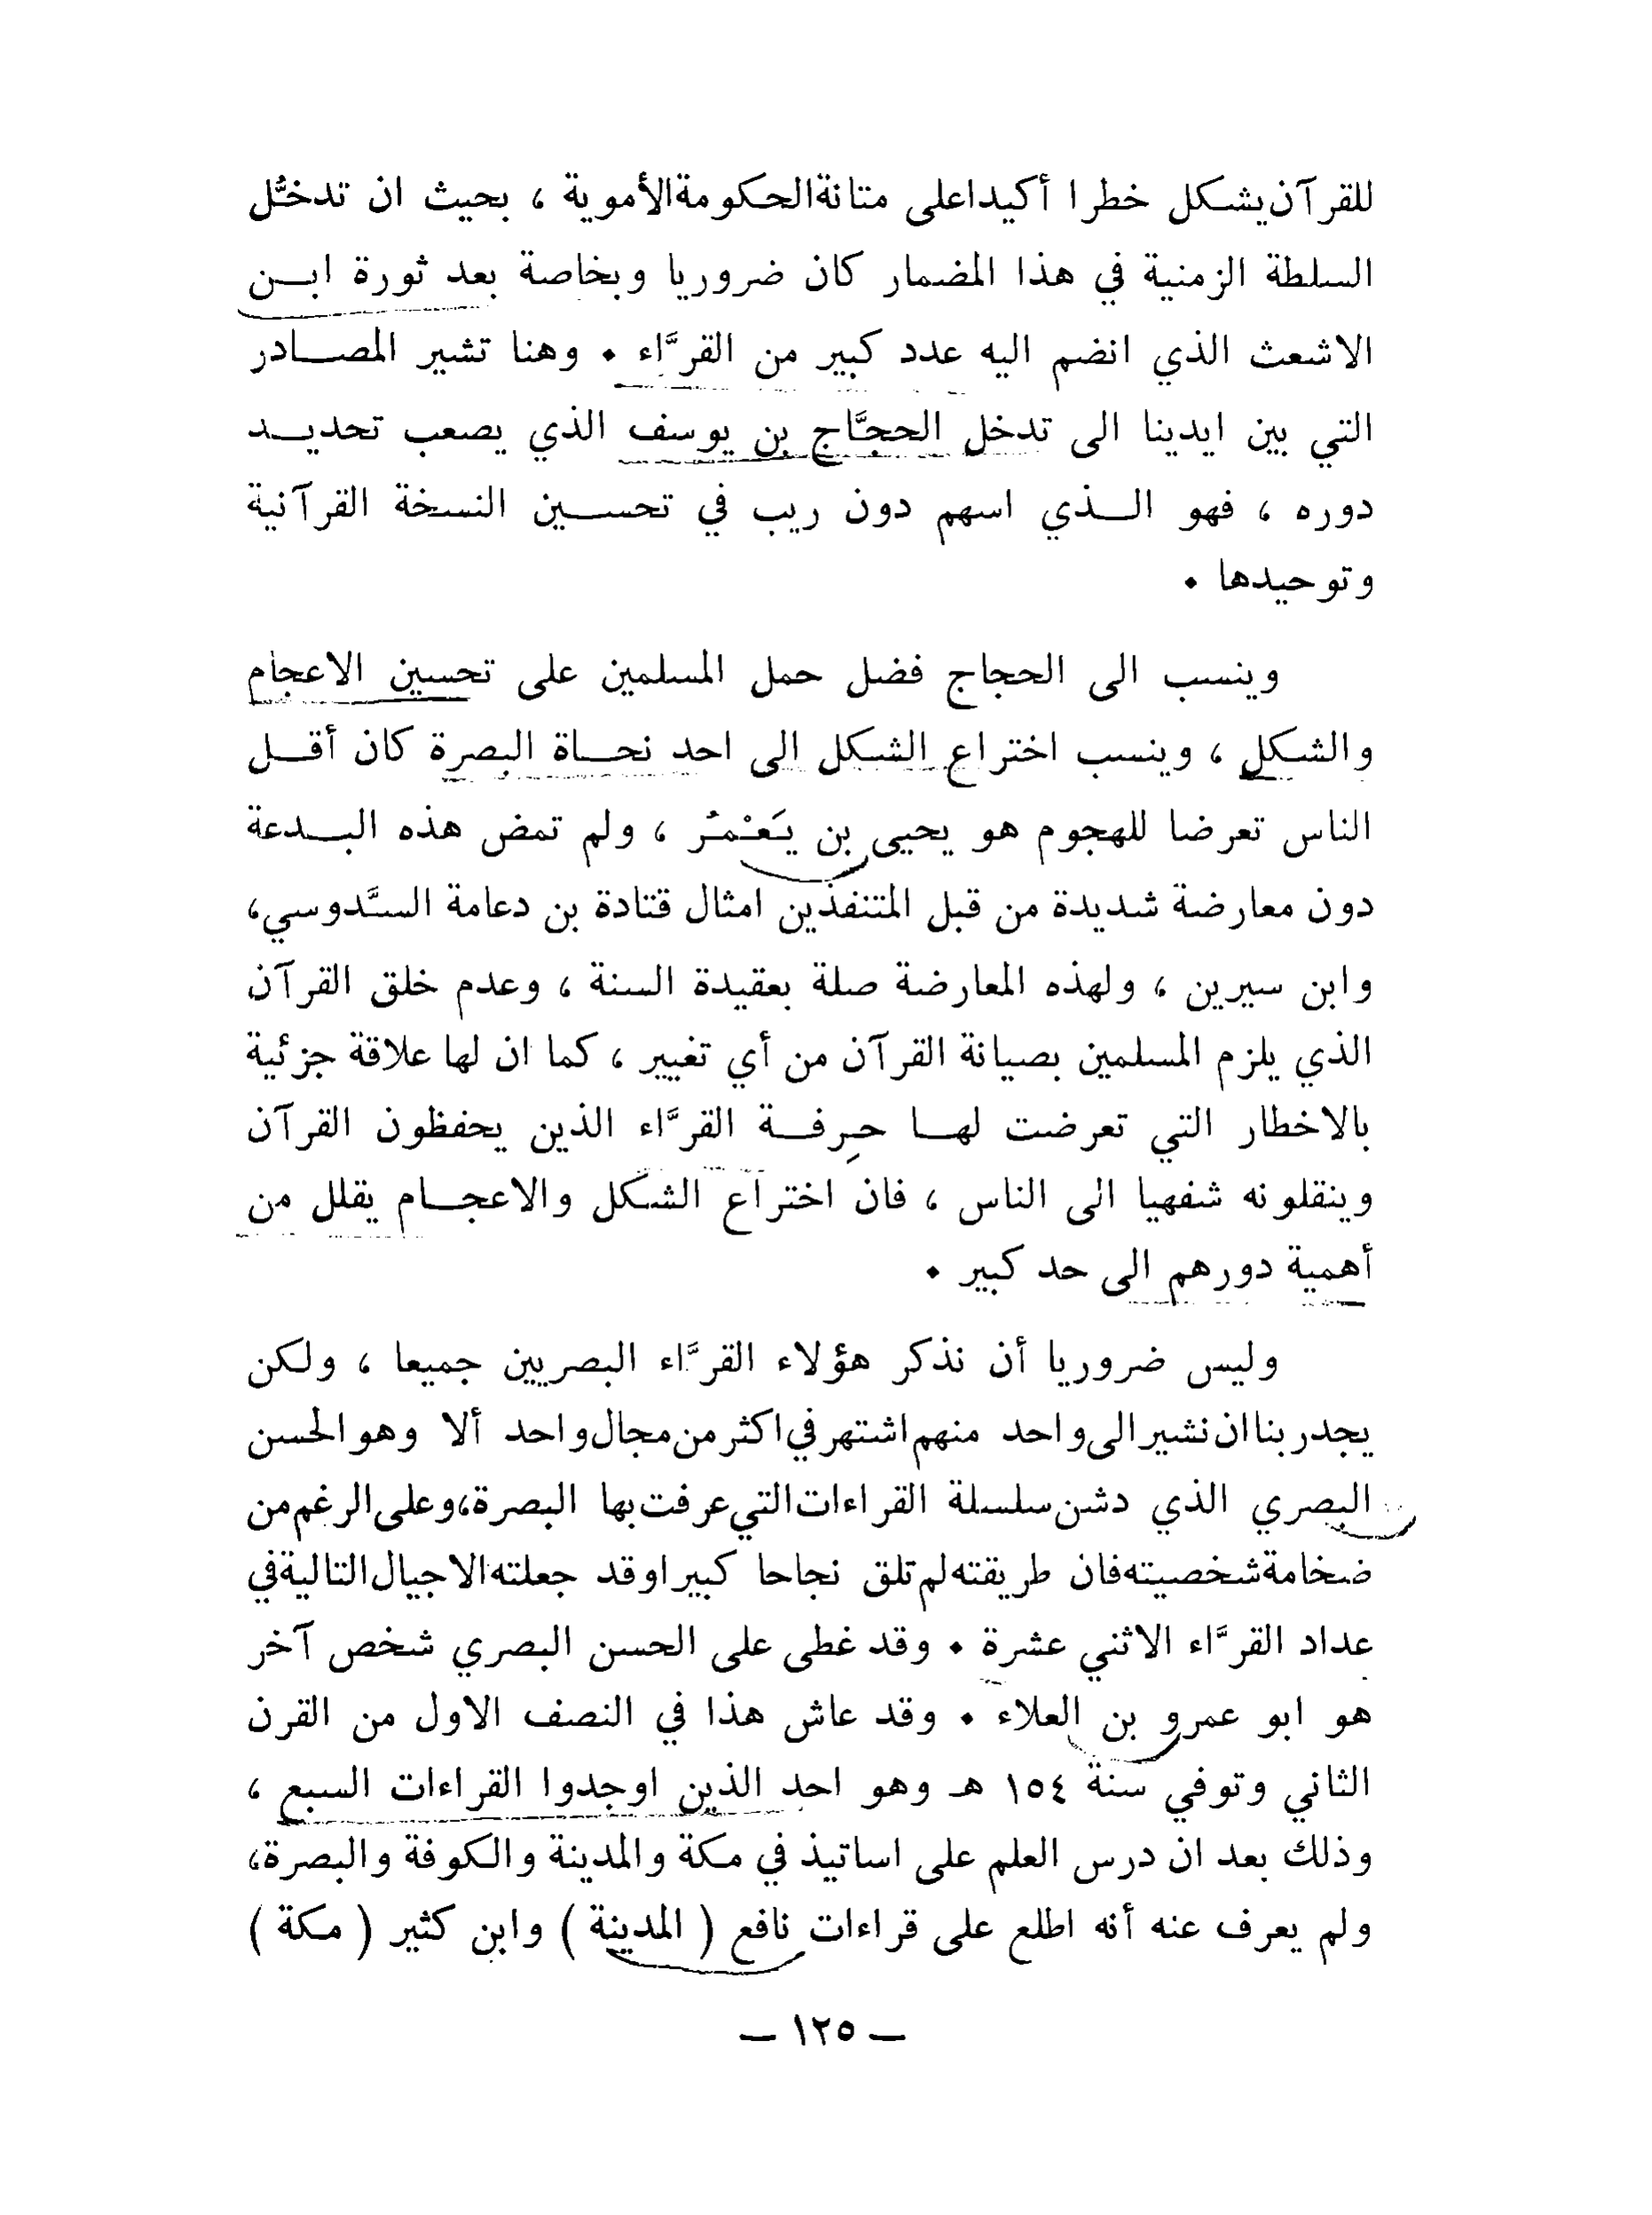 للقرآن يشكل خطرا أكيدا على متانة الحكومة الأموية ، بحيث ان تدخُّل
السلطة الزمنية في هذا المضمار كان ضروريا وبخاصة بعد ثورة ابـن
الاشعث الذي انضم اليه عدد كبير من القرَّاء . وهنا تشير المصــادر
التي بين ايدينا الى تدخل الحجَّاج بن يوسف الذي يصعب تحديــد
دوره ، فهو الــذي اسهم دون ريب في تحســين النسخة القرآنية
وتوحيدها .
وينسب الى الحجاج فضل حمل المسلمين على تحسين الاعجام
والشكل ، وينسب اختراع الشكل الى احد نحــاة البصرة كان أقــل
الناس تعرضا للهجوم هو يحيى بن يَعْمُر ، ولم تمض هذه البــدعة
دون معارضة شديدة من قبل المتنفذين امثال قتادة بن دعامة السَّدوسي،
وابن سيرين ، ولهذه المعارضة صلة بعقيدة السنة ، وعدم خلق القرآن
الذي يلزم المسلمين بصيانة القرآن من أي تغيير ، كما ان لها علاقة جزئية
بالاخطار التي تعرضت لهــا حِرفــة القرَّاء الذين يحفظون القرآن
وينقلونه شفهيا الى الناس ، فان اختراع الشكل والاعجــام يقلل من
أهمية دورهم الى حد كبير .
وليس ضروريا أن نذكر هؤلاء القرَّاء البصريين جميعا ، ولكن
يجدر بنا ان نشير الى واحد منهم اشتهر في اكثر من مجال واحد ألا وهو الحسن
البصري الذي دشن سلسلة القراءات التي عرفت بها البصرة، وعلى الرغم من
ضخامة شخصيته فان طريقته لم تلق نجاحا كبيرا وقد جعلته الاجيال التالية في
عداد القرَّاء الاثني عشرة . وقد غطى على الحسن البصري شخص آخر
هو ابو عمرو بن العلاء . وقد عاش هذا في النصف الاول من القرن
الثاني وتوفي سنة ١٥٤ هـ وهو احد الذين اوجدوا القراءات السبع ،
وذلك بعد ان درس العلم على اساتيذ في مكة والمدينة والكوفة والبصرة،
ولم يعرف عنه أنه اطلع على قراءات نافع ( المدينة ) وابن كثير ( مكة )
— ١٢٥ —